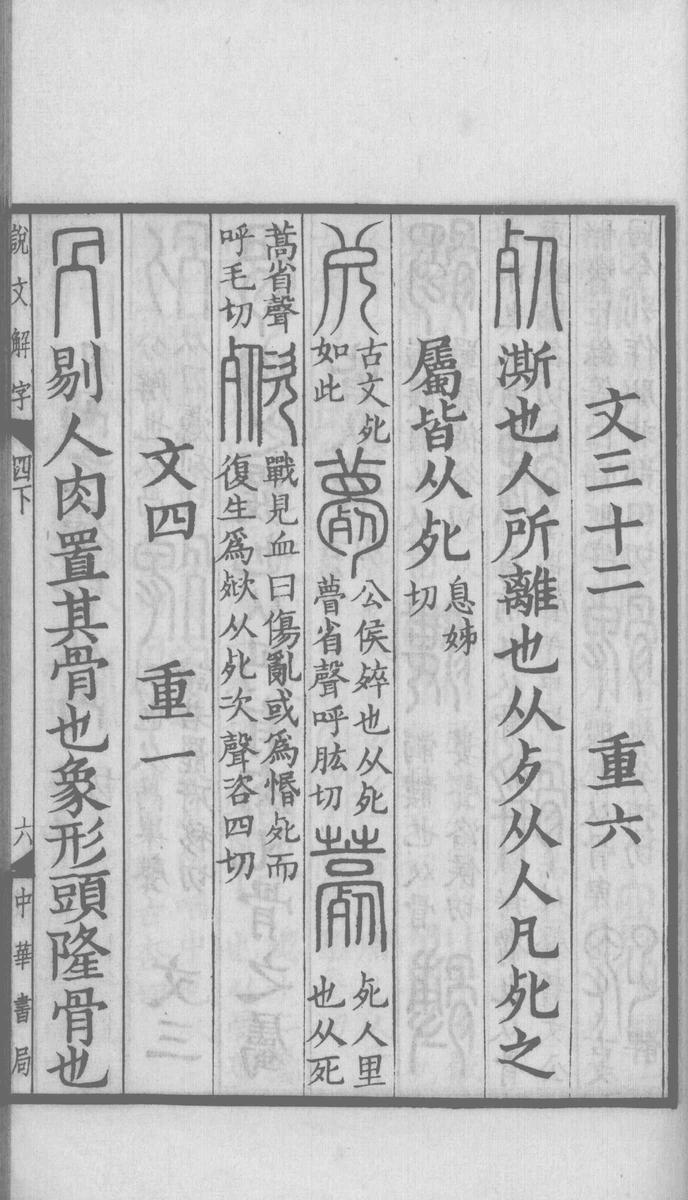 文三十二　重六
𣦸澌也人所離也从歺从人凡𣦸之
屬皆从𣦸息姊切
古文𣦸如此薨公侯殌也从𣦸瞢省聲呼肱切薧𣦸人里也从死
蒿省聲呼毛切㱞戰見血曰傷亂或爲惽𣦸而復生爲㱞从𣦸次聲咨四切
文四　重一
冎剔人肉置其骨也象形頭隆骨也
說文解字　四下　六　中華書局